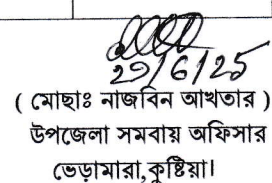 29/6/25
( মোছাঃ নাজবিন আখতার )
উপজেলা সমবায় অফিসার
ভেড়ামারা,কুষ্টিয়া।